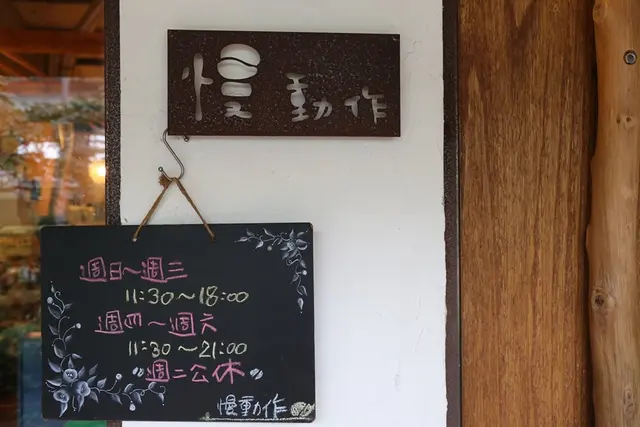 慢動作
週日～週三
11:30～18:00
週四～週六
11:30～21:00
週二公休
慢動作